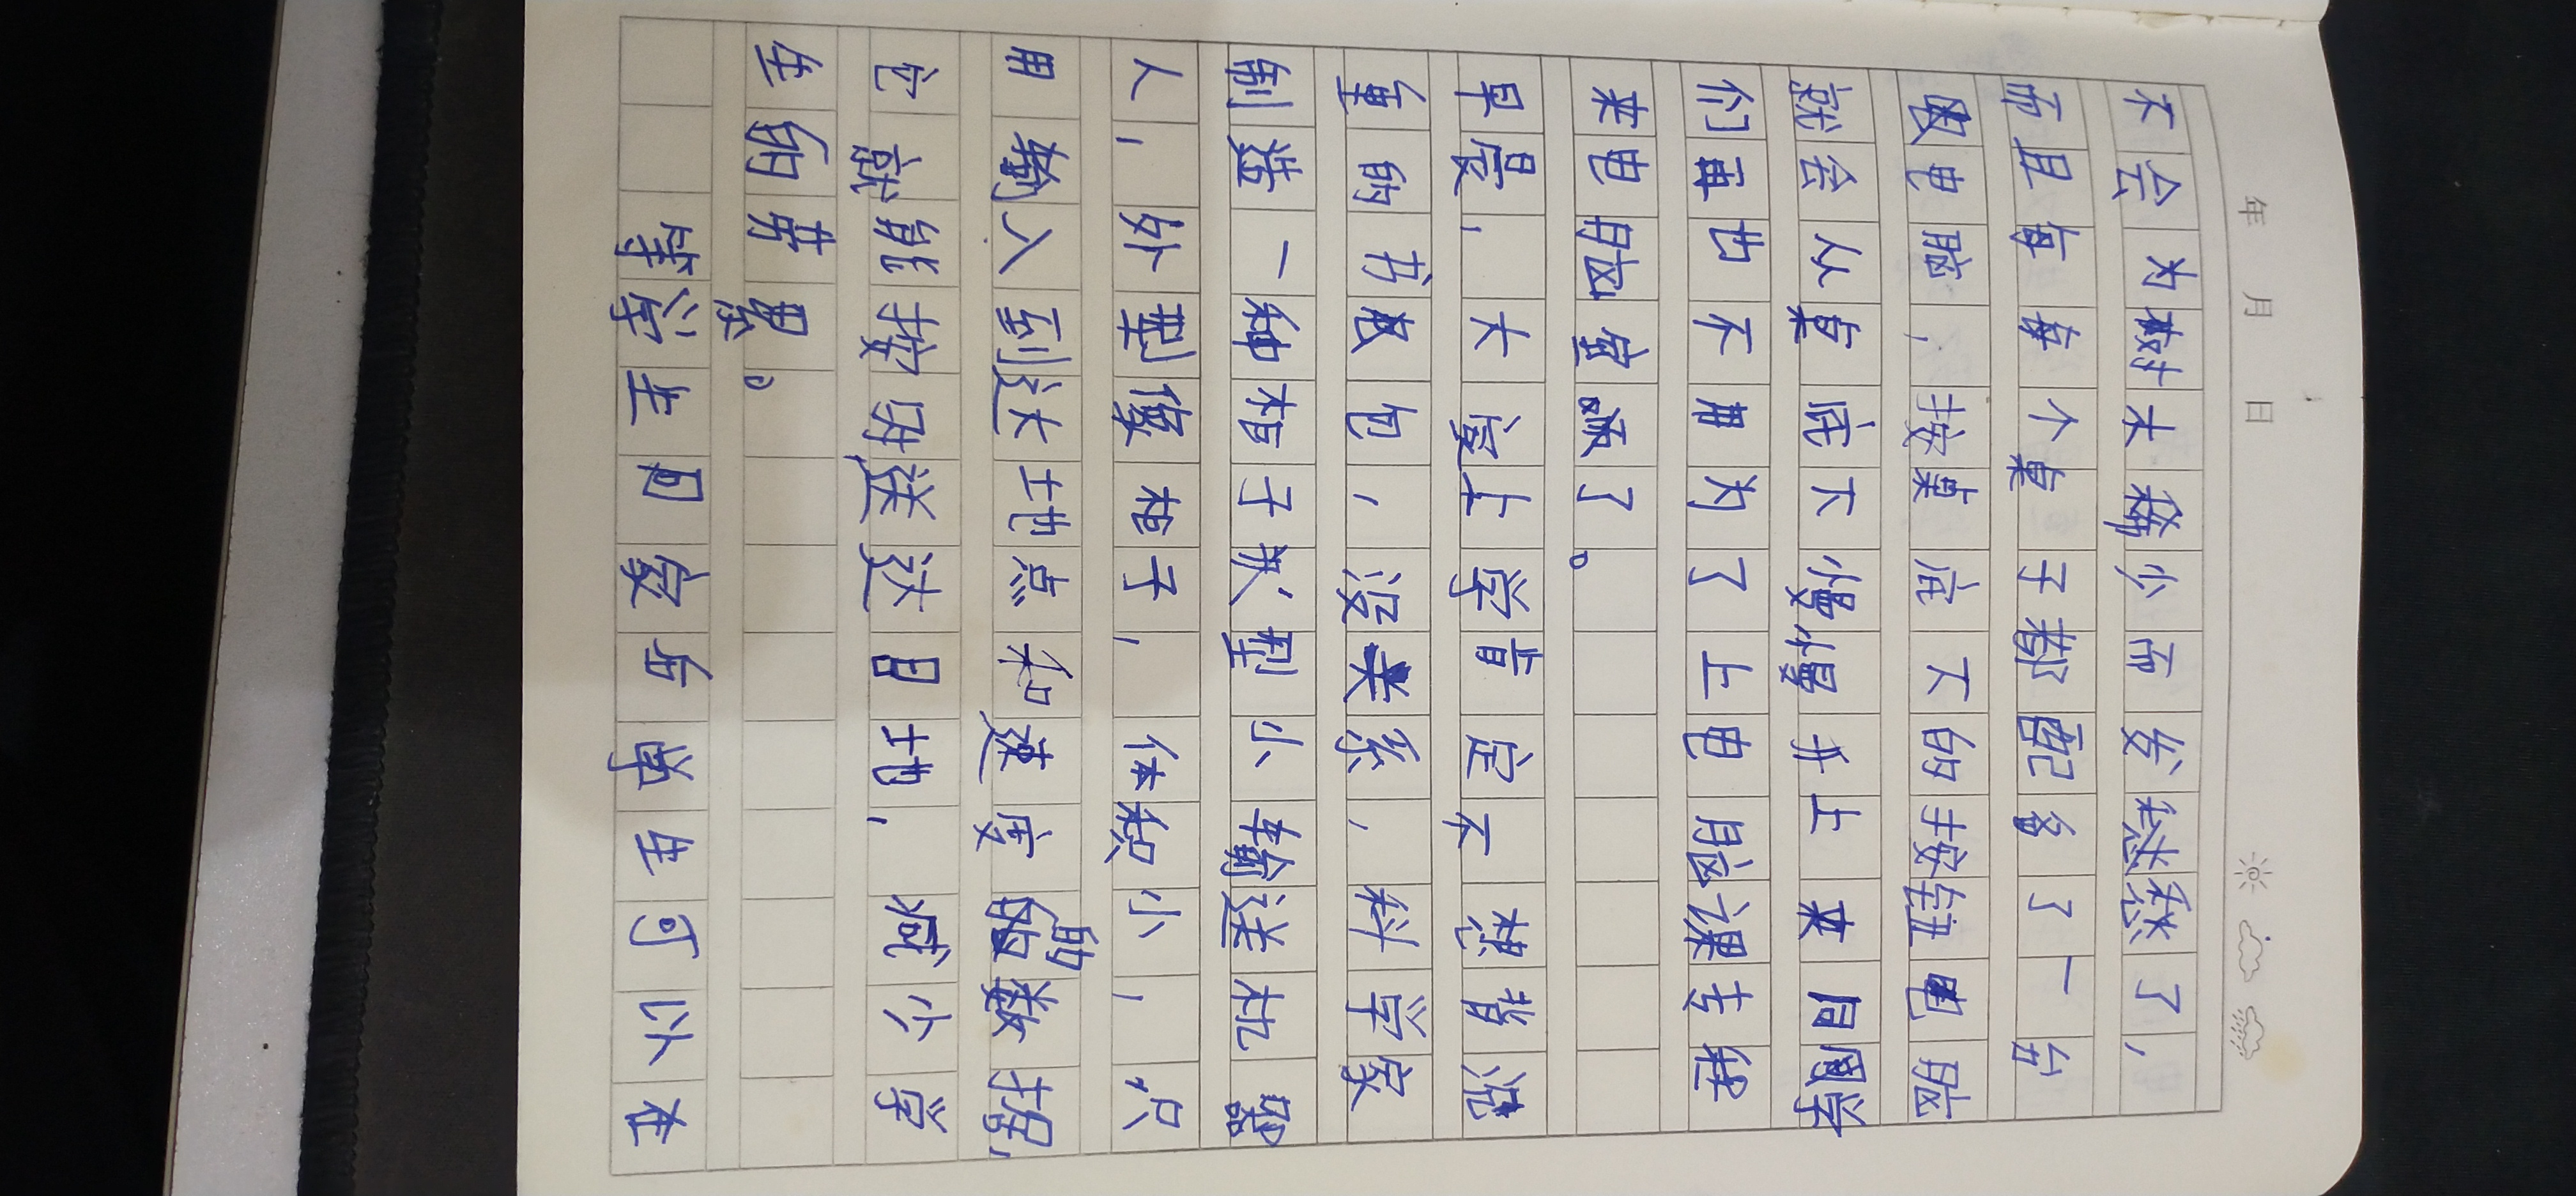 年 月 日
不会为树木稀少而发愁愁了，
而且每每个桌子都配备了一台
电脑，按桌底下的按钮电脑
就会从桌底下慢慢升上来同学
们再也不用为了上电脑课专程
来电脑室了。
早晨，大家上学肯定不想背沉
重的书包，没关系，科学家
制造一种桔子类型小输送机器
人，外型像桔子，体积小，只
用输入到达地点和速度的数据，
它就能按时送达目地，减少学
生的劳累。
等学生回家后学生可以在